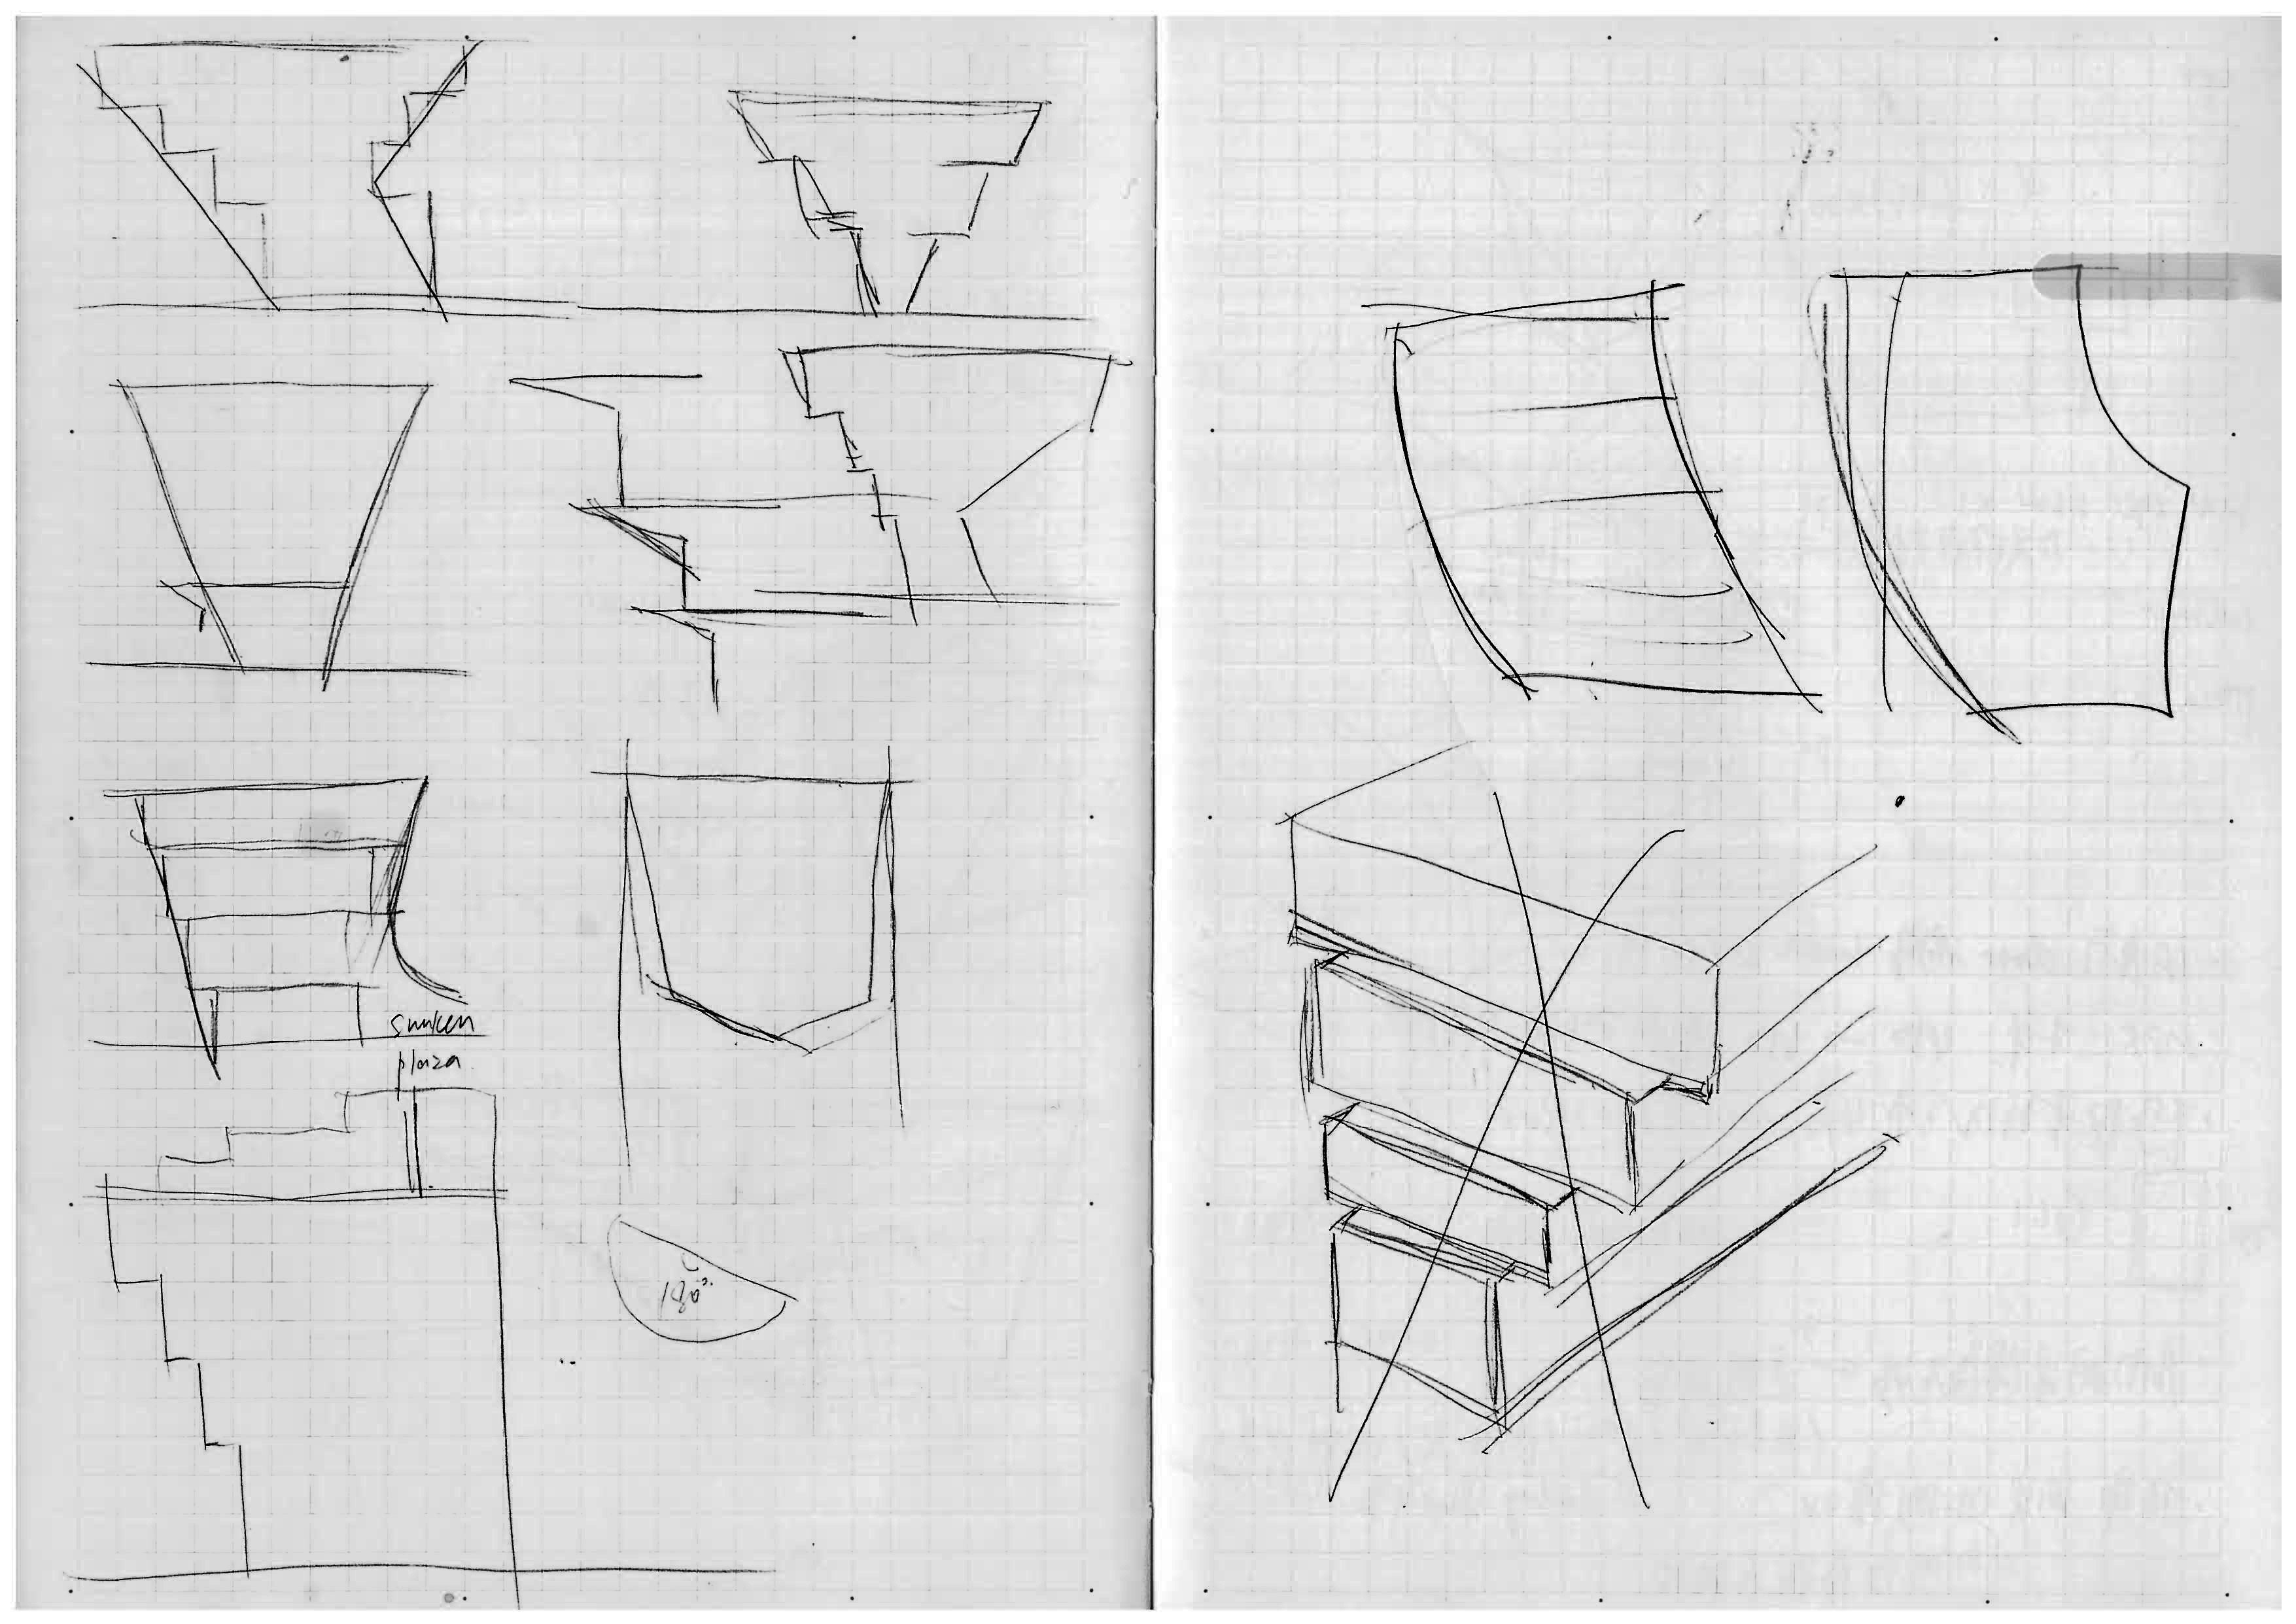 sunken
plaza
180°